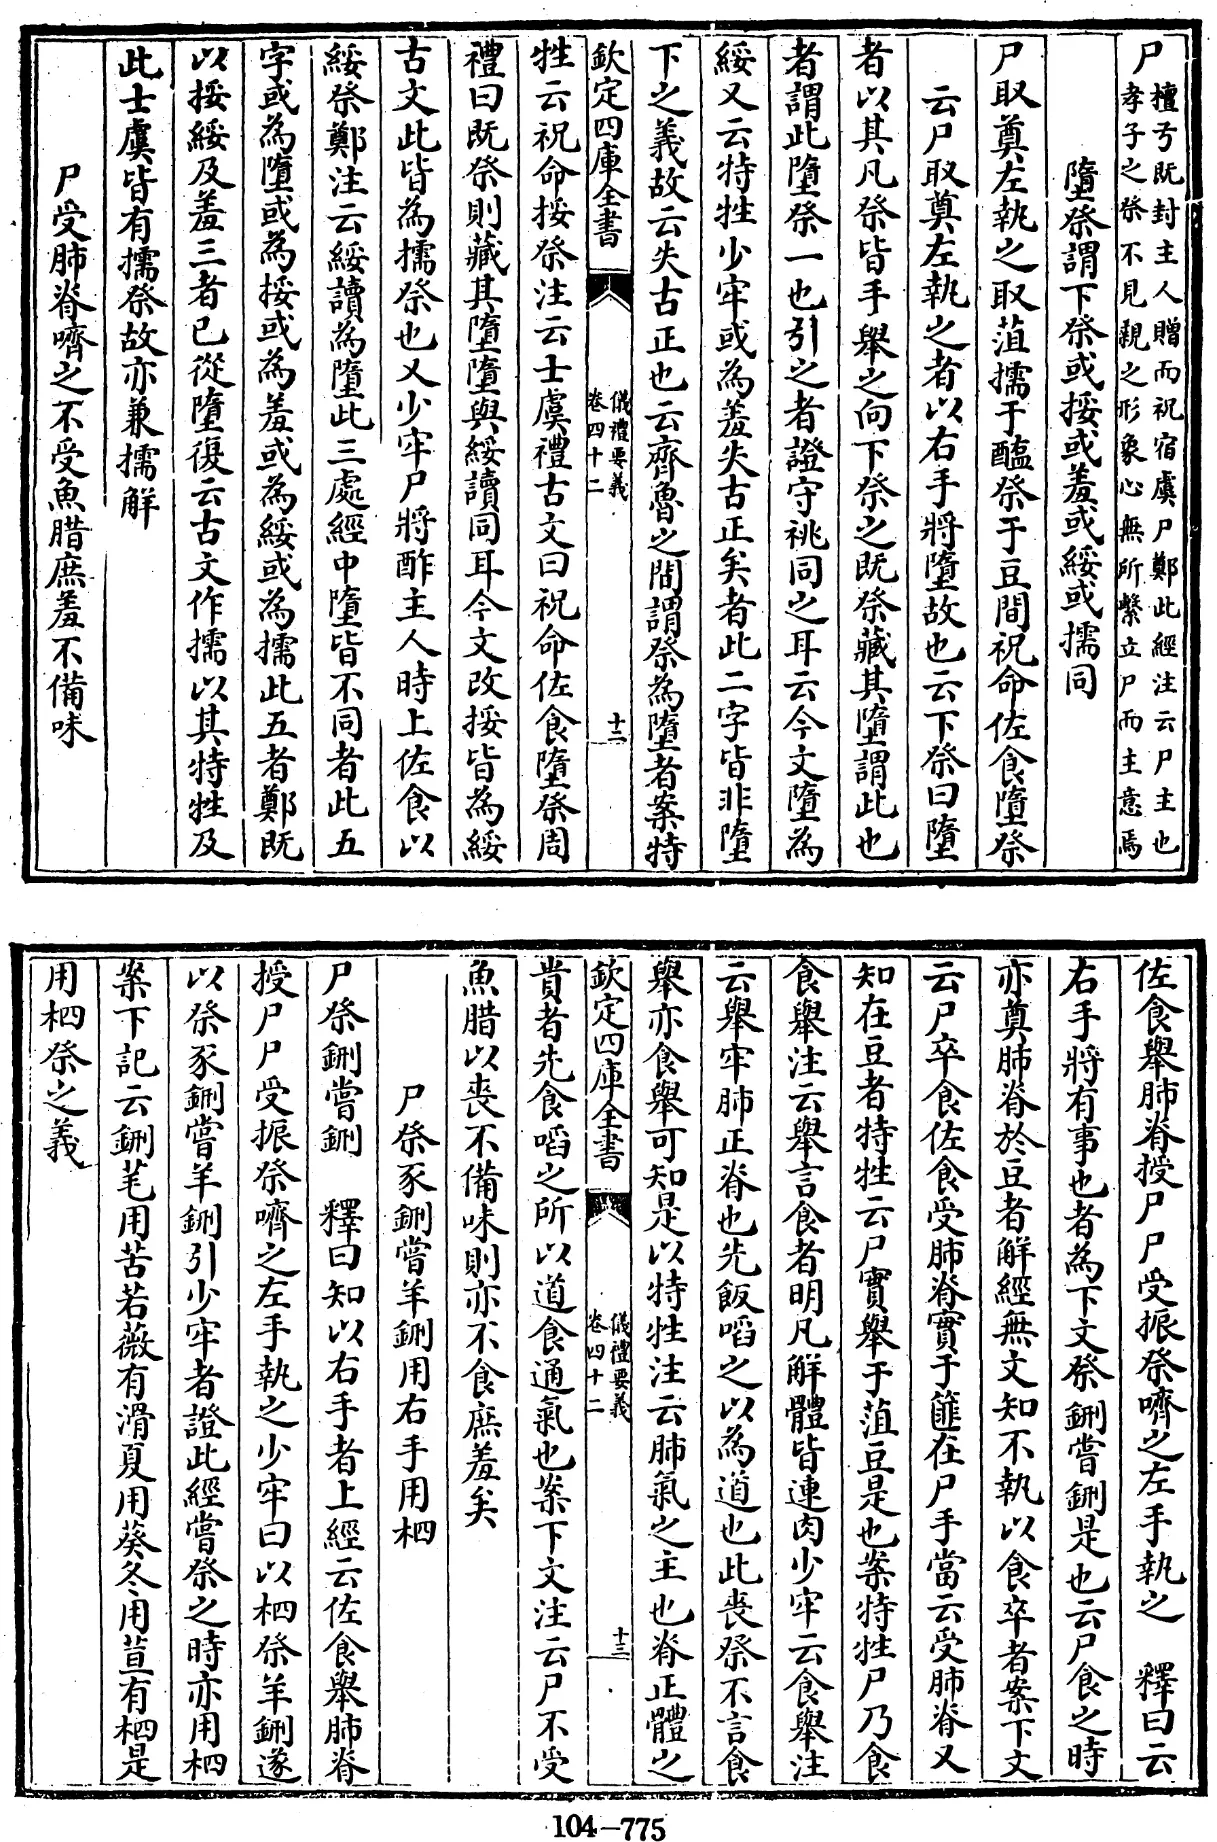 尸檀弓既封主人贈而祝宿虞尸鄭此經注云尸主也
孝子之祭不見親之形象心無所繫立尸而主意焉
墮祭謂下祭或挼或羞或綏或擩同
尸取奠左執之取菹擩于醢祭于豆間祝命佐食墮祭
云尸取奠左執之者以右手將墮故也云下祭曰墮
者以其凡祭皆手舉之向下祭之既祭藏其墮謂此也
者謂此墮祭一也引之者證守祧同之耳云今文墮為
綏又云特牲少牢或為羞失古正矣者此二字皆非墮
下之義故云失古正也云齊魯之間謂祭為墮者案特
欽定四庫全書
儀禮要義
卷四十二
十二
牲云祝命挼祭注云士虞禮古文曰祝命佐食墮祭周
禮曰既祭則藏其墮墮與綏讀同耳今文改挼皆為綏
古文此皆為擩祭也又少牢尸將酢主人時上佐食以
綏祭鄭注云綏讀為墮此三處經中墮皆不同者此五
字或為墮或為挼或為羞或為綏或為擩此五者鄭既
以挼綏及羞三者已從墮復云古文作擩以其特牲及
此士虞皆有擩祭故亦兼擩解
尸受肺脊嚌之不受魚腊庶羞不備味
佐食舉肺脊授尸尸受振祭嚌之左手執之 釋曰云
右手將有事也者為下文祭鉶嘗鉶是也云尸食之時
亦奠肺脊於豆者解經無文知不執以食卒者案下文
云尸卒食佐食受肺脊實于篚在尸手當云受肺脊又
知在豆者特牲云尸實舉于菹豆是也案特牲尸乃食
食舉注云舉言食者明凡解體皆連肉少牢云食舉注
云舉牢肺正脊也先飯啗之以為道也此喪祭不言食
舉亦食舉可知是以特牲注云肺氣之主也脊正體之
欽定四庫全書
儀禮要義
卷四十二
十三
貴者先食啗之所以道食通氣也案下文注云尸不受
魚腊以喪不備味則亦不食庶羞矣
尸祭豕鉶嘗羊鉶用右手用柶
尸祭鉶嘗鉶 釋曰知以右手者上經云佐食舉肺脊
授尸尸受振祭嚌之左手執之少牢曰以柶祭羊鉶遂
以祭豕鉶嘗羊鉶引少牢者證此經嘗祭之時亦用柶
案下記云鉶芼用苦若薇有滑夏用葵冬用荁有柶是
用柶祭之義
104-775